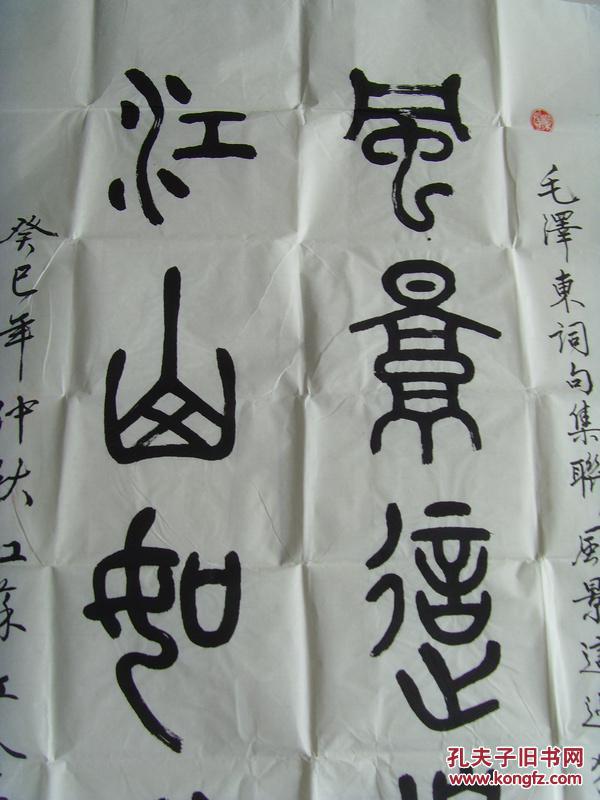 毛澤東詞句集聯風景這邊
風景這
江山如
癸巳年仲秋江蘇江
孔夫子旧书网
www.kongfz.com